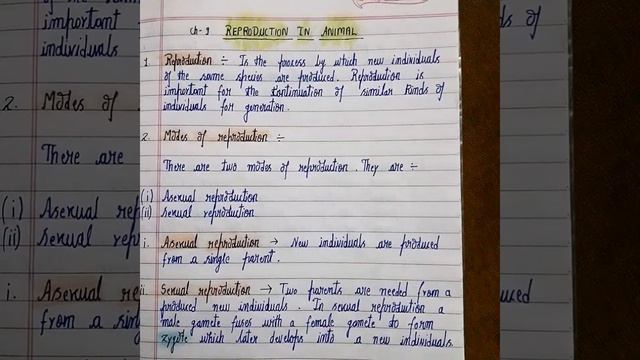 Ch-9 REPRODUCTION IN ANIMAL
1. Reproduction ÷ Is the process by which new individuals
of the same species are produced. Reproduction is
important for the continuation of similar kinds of
individuals for generation.
2. Modes of reproduction ÷
There are two modes of reproduction. They are ÷
(i) Asexual reproduction
(ii) sexual reproduction
i. Asexual reproduction → New individuals are produced
from a single parent.
ii. Sexual reproduction → Two parents are needed from a
produced new individuals. In sexual reproduction a
male gamete fuses with a female gamete to form
zygote which later develops into a new individuals.